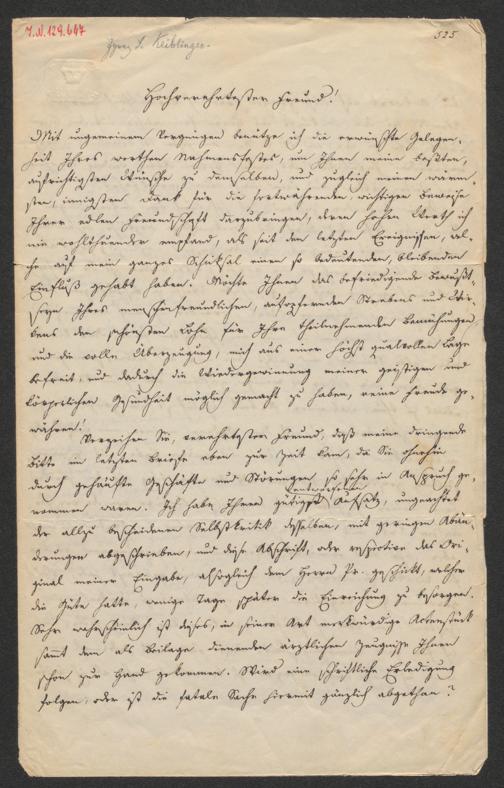 J.N. 129.647
525
Ignaz F. Keiblinger.
Hochverehrtester Freund!
Mit ungemeinem Vergnügen benütze ich die erwünschte Gelegen-
heit Ihres werthen Nahmensfestes, um Ihnen meine besten,
aufrichtigsten Wünsche zu demselben, und zugleich meinen wärm-
sten, innigsten Dank für die fortwährenden, wichtigen Beweise
Ihrer edlen Freundschaft darzubringen, deren hohen Werth ich
nie wohlthuender empfand, als seit den letzten Ereignissen, wel-
che auf mein ganzes Schicksal einen so bedeutenden, bleibenden
Einfluß gehabt haben. Möchte Ihnen das befriedigende Bewußt-
seyn Ihres menschenfreundlichen, aufopfernden Strebens und Wir-
kens den schönsten Lohn für Ihre theilnehmenden Bemühungen
und die volle Überzeugung, mich aus einer höchst qualvollen Lage
befreit, und dadurch die Wiedergewinnung meiner geistigen und
körperlichen Gesundheit möglich gemacht zu haben, reine Freude ge-
währen!
Verzeihen Sie, verehrtester Freund, daß meine dringende
Bitte im letzten Briefe eben zur Zeit kam, da Sie ohnehin
durch gehäufte Geschäfte und Störungen so sehr in Anspruch ge-
nommen waren. Ich habe Ihren gütigst entworfenen Aufsatz, ungeachtet
der allzu bescheidenen Selbstkritik desselben, mit geringen Abän-
derungen abgeschrieben, und diese Abschrift, oder respective das Ori-
ginal meiner Eingabe, alsogleich dem Herrn Pr. geschickt, welcher
die Güte hatte, wenige Tage später die Einreichung zu besorgen.
Sehr wahrscheinlich ist dieses, in seiner Art merkwürdige Actenstück
sammt dem als Beilage dienenden ärztlichen Zeugnisse Ihnen
schon zur Hand gekommen. Wird eine schriftliche Erledigung
folgen, oder ist die fatale Sache hiermit gänzlich abgethan?